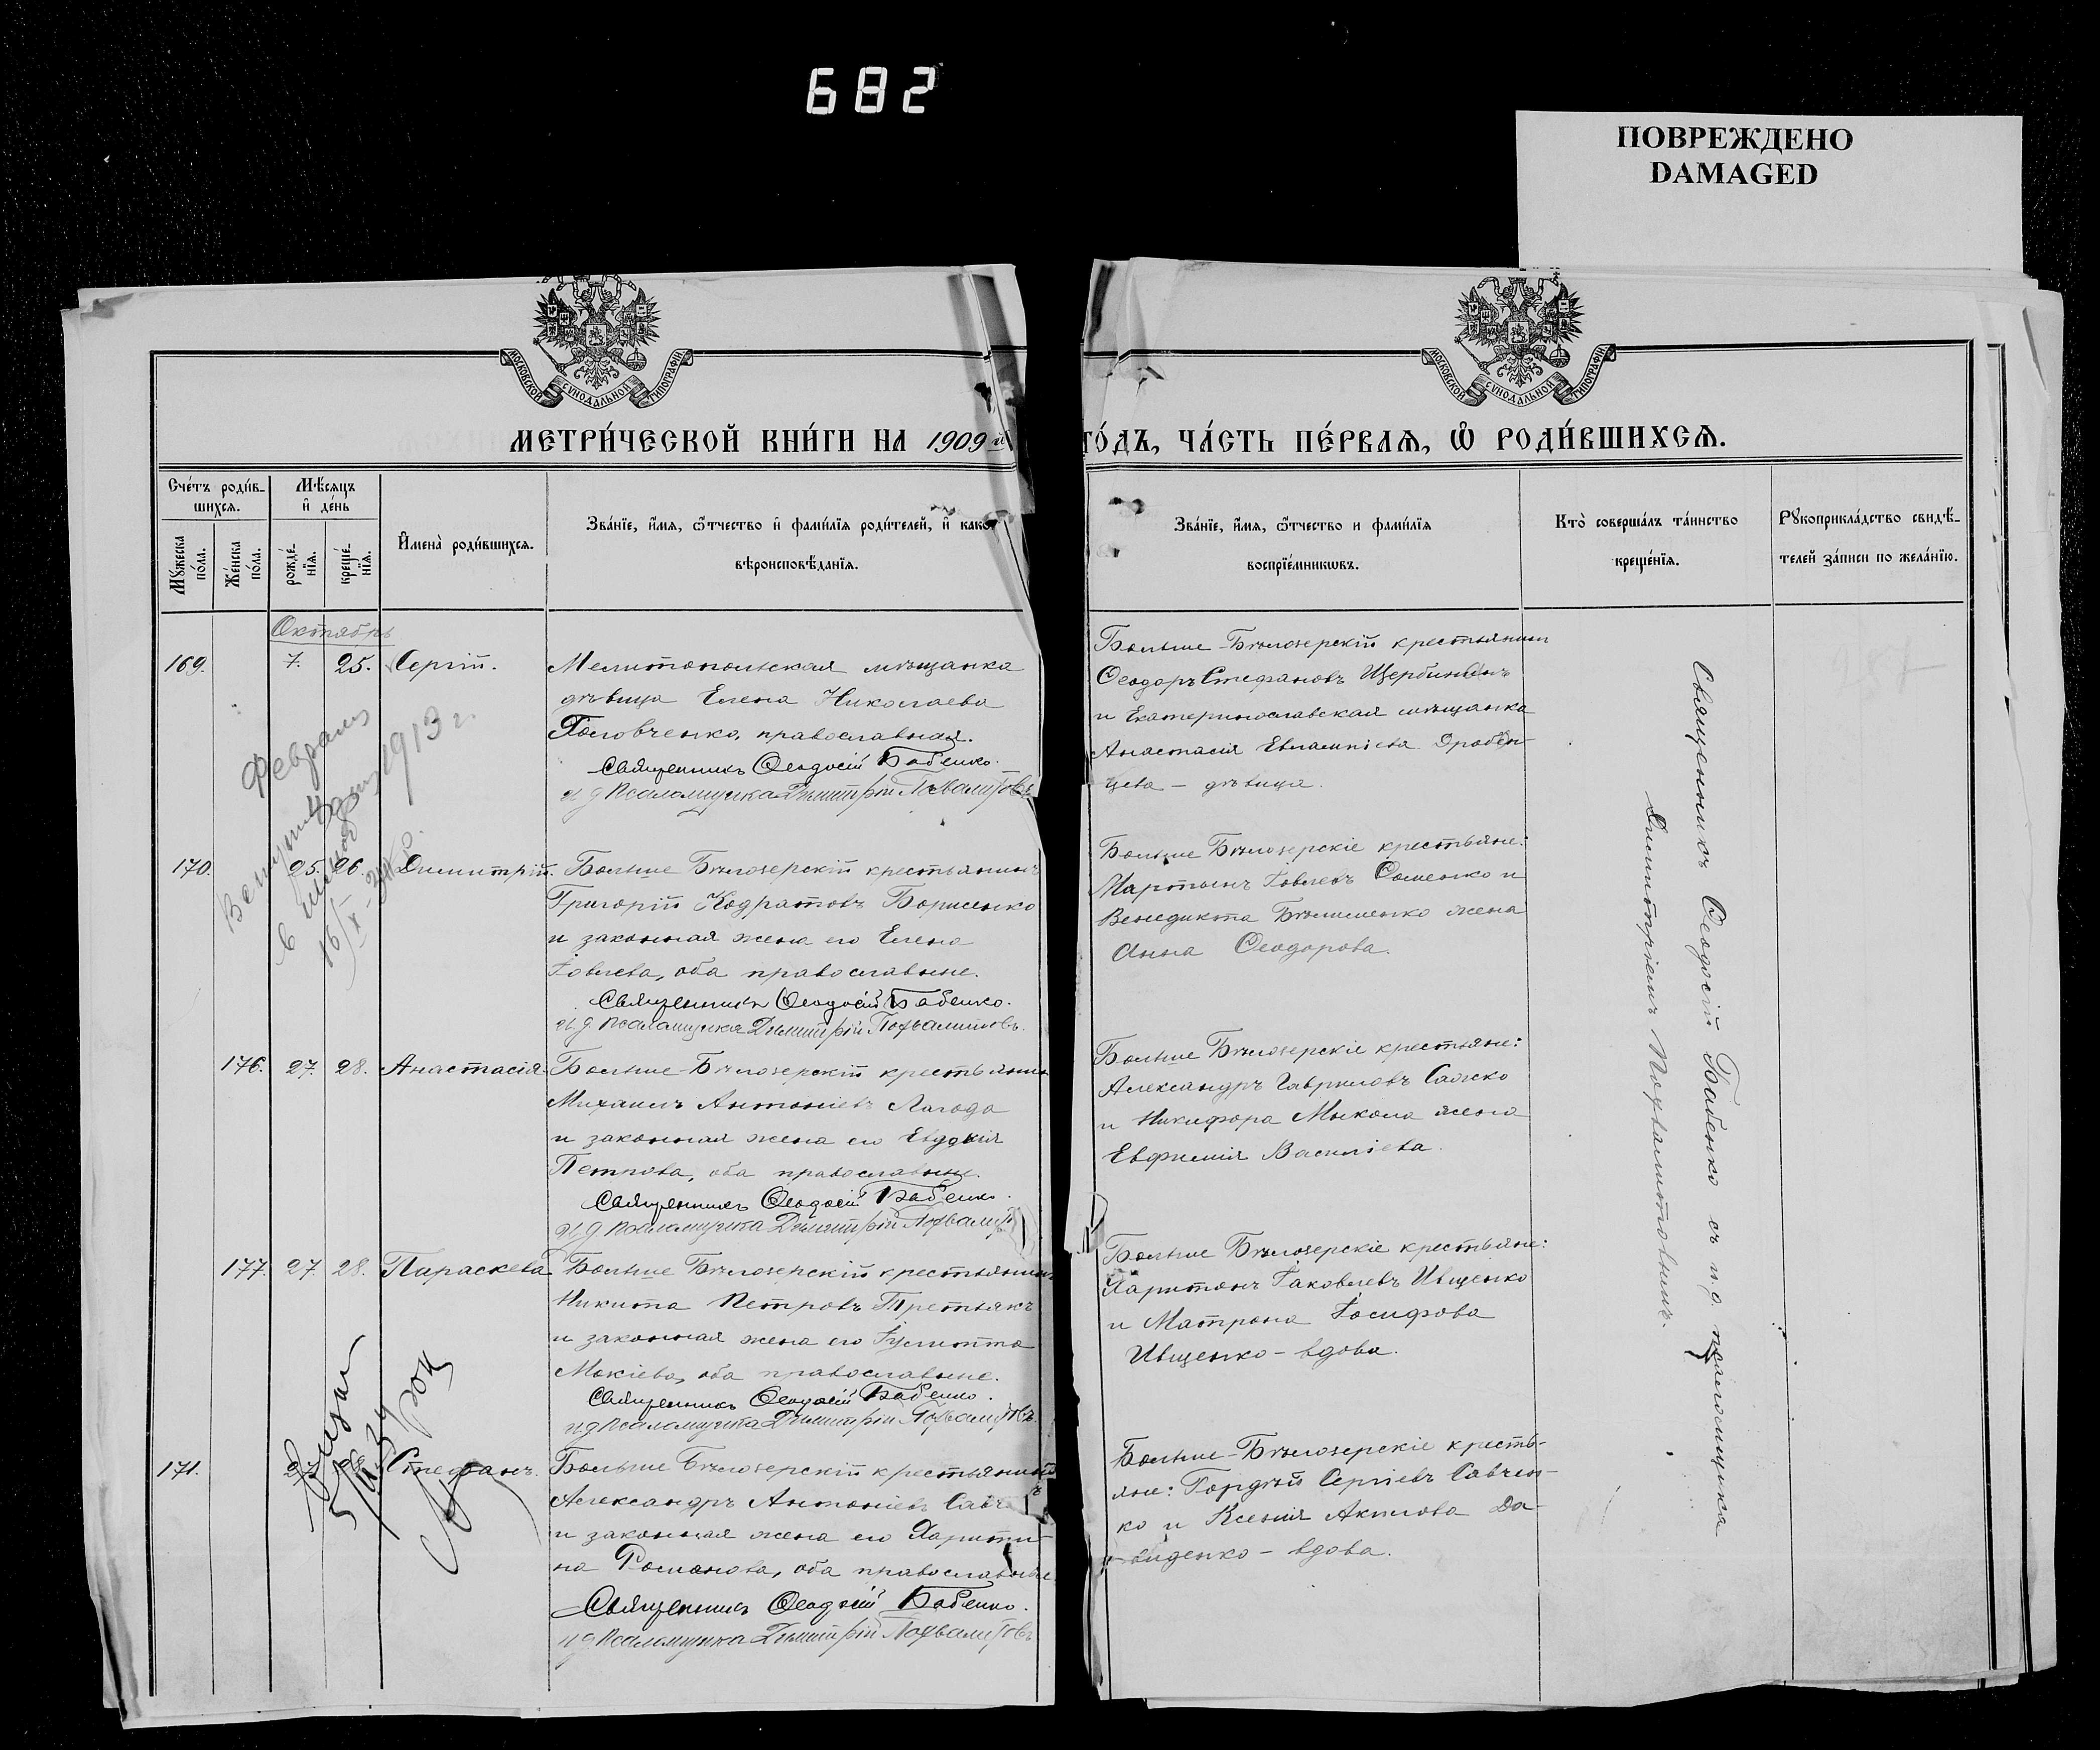 682
ПОВРЕЖДЕНО
DAMAGED
МОСКОВСКОЙ СѴНОДАЛЬНОЙ ТИПОГРАФІИ
МОСКОВСКОЙ СѴНОДАЛЬНОЙ ТИПОГРАФІИ
МЕТРИ́ЧЕСКОЙ КНИ́ГИ НА 1909 й
ГО́ДЪ, ЧА́СТЬ ПЕ́РВАЯ, Ѽ РОДИ́ВШИХСЯ.
Сче́тъ роди́в-
шихся.
Мꙋ́жеска по́ла.
Же́нска по́ла.
Мѣ́сяцъ
и́ де́нь
рожде́-
нїя.
креще́-
нїя.
И҆мена̀ роди́вшихся.
Зва́нїе, и҆́мя, ѻ҆́тчество и҆ фами́лїя роди́телей, и҆ како
вѣроисповѣ́данїя.
Зва́нїе, и҆́мя, ѻ҆́тчество и фами́лїя
воспрїе́мникωвъ.
Кто̀ соверша́лъ та́инство
креще́нїя.
Рꙋкоприкла́дство свидѣ́-
телей за́писи по жела́нїю.
Октябрь
169. 7. 25. Сергій.
Мелитопольская мѣщанка
дѣвица Елена Николаева
Головченко, православная.
Священникъ Ѳеодосій Бабенко.
и д псаломщика Димитрій Похвалитовъ
Больше-Бѣлозерскій крестьянинъ
Ѳеодоръ Стефановъ Щербина
и Екатеринославская мѣщанка
Анастасія Евлампіева
цева – дѣвица.
Священникъ Ѳеодосій Бабенко съ и. д. псаломщика
Димитріемъ Похвалитовымъ.
Февраля
1913 г.
170. 25. 26. Димитрій.
Больше Бѣлозерскій крестьянинъ
Григорій Кодратовъ Борисенко
и законная жена его Елена
Іовлева, оба православные.
Священникъ Ѳеодосій Бабенко.
и. д. псаломщика Димитрій Похвалитовъ.
Больше Бѣлозерскіе крестьяне:
Мартынъ Іовлевъ Сошенко и
Венедикта жена
Анна Ѳеодорова.
176. 27. 28. Анастасія.
Больше-Бѣлозерскій крестьянинъ
Михаилъ Антоніевъ Лагода
и законная жена его Евдокія
Петрова, оба православные.
Священникъ Ѳеодосій Бабенко.
и. д. псаломщика Димитрій Похвалит
Больше Бѣлозерскіе крестьяне:
Александръ Гавриловъ Сашко
и Никифора Мыкола жена
Евфимія Василіева.
177. 27. 28. Параскева
Больше Бѣлозерскій крестьянинъ
Никита Петровъ Третьякъ
и законная жена его Іулитта
Мокіева, оба православные.
Священникъ Ѳеодосій Бабенко.
и д псаломщика Димитрій Похвалитовъ.
Больше Бѣлозерскіе крестьяне:
Харитонъ Іаковлевъ Ивщенко
и Матрона Іосифова
Ивщенко – вдова.
171. 27. 28. Стефанъ.
Больше Бѣлозерскій крестьянинъ
Александръ Антоніевъ Сав
и законная жена его Харити-
на Романова, оба православные
Священникъ Ѳеодосій Бабенко.
и д псаломщика Димитрій Похвалитовъ
Больше-Бѣлозерскіе кресть-
яне: Гордѣй Сергіевъ Савчен-
ко и Ксенія Акилова Да-
виденко – вдова.